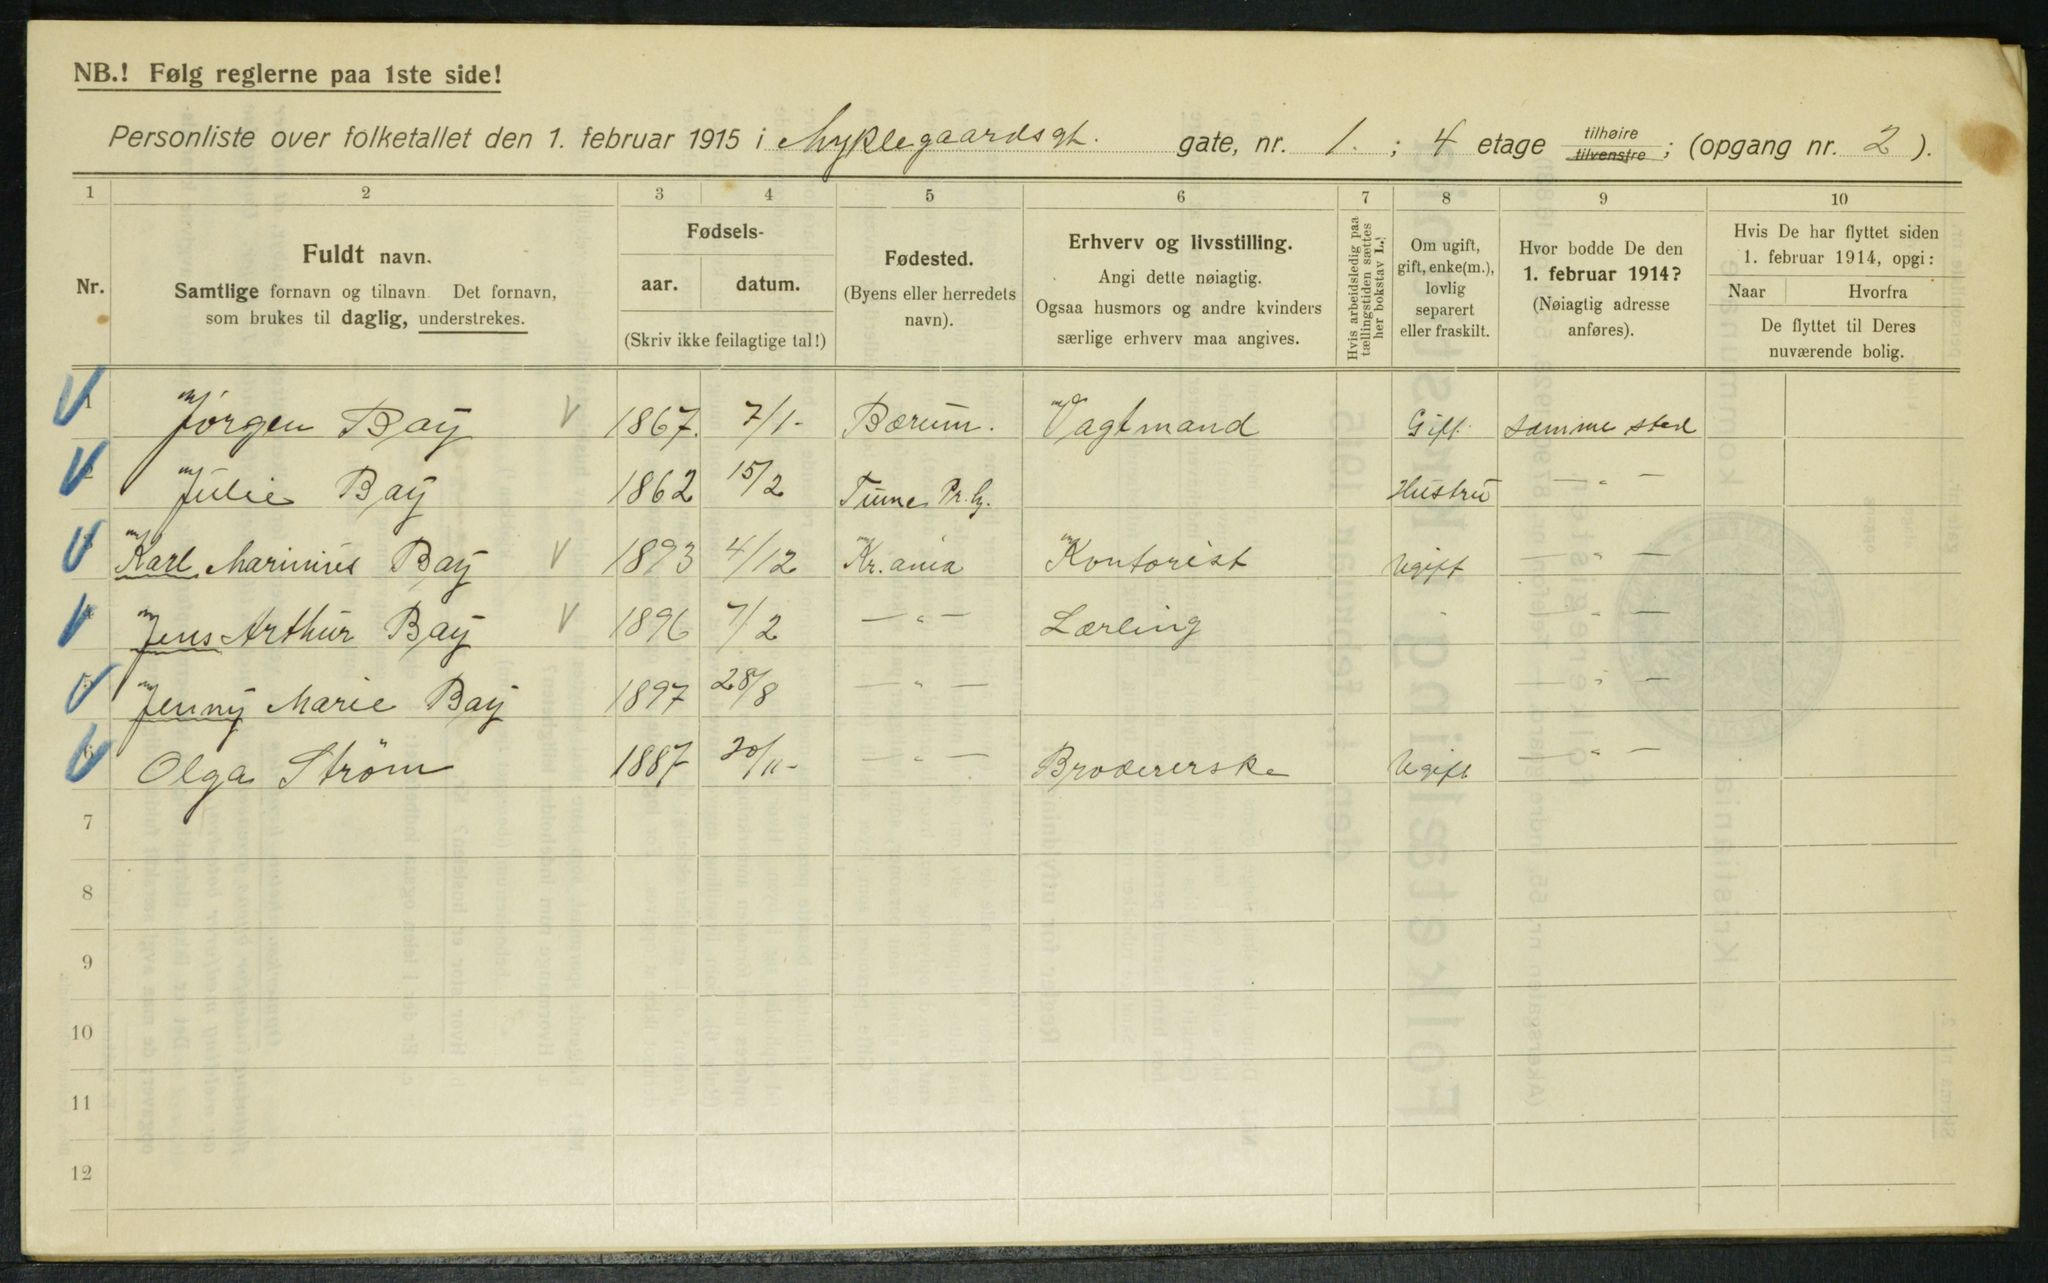 NB.! Følg reglerne paa 1ste side!
Personliste over folketallet den 1. februar 1915 i Myklegaardsgt. gate, nr. 1. ; 4 etage tilhøire tilvenstre ; (opgang nr. 2 ).
1 2 3 4 5 6 7 8 9 10
Nr.
Fuldt navn.
Samtlige fornavn og tilnavn. Det fornavn,
som brukes til daglig, understrekes.
Fødsels-
aar. datum.
(Skriv ikke feilagtige tal!)
Fødested.
(Byens eller herredets
navn).
Erhverv og livsstilling.
Angi dette nøiagtig.
Ogsaa husmors og andre kvinders
særlige erhverv maa angives.
Hvis arbeidsledig paa
tællingstiden sættes
her bokstav L.!
Om ugift,
gift, enke(m.),
lovlig
separert
eller fraskilt.
Hvor bodde De den
1. februar 1914?
(Nøiagtig adresse
anføres).
Hvis De har flyttet siden
1. februar 1914, opgi:
Naar Hvorfra
De flyttet til Deres
nuværende bolig.
1 Jørgen Bay 1867. 7/1- Bærum. Vagtmand Gift. Samme sted
2 Julie Bay 1862 15/2 Tune Pr. Hustru — " —
3 Karl Marinius Bay 1893 4/12 Kr.ania Kontorist Ugift — " —
4 Jens Arthur Bay 1896 7/2 — " — Lærling " — " —
5 Jenny Marie Bay 1897 28/8 — " — — " —
6 Olga Strøm 1887 20/11- — " — Brodererske Ugift — " —
7
8
9
10
11
12